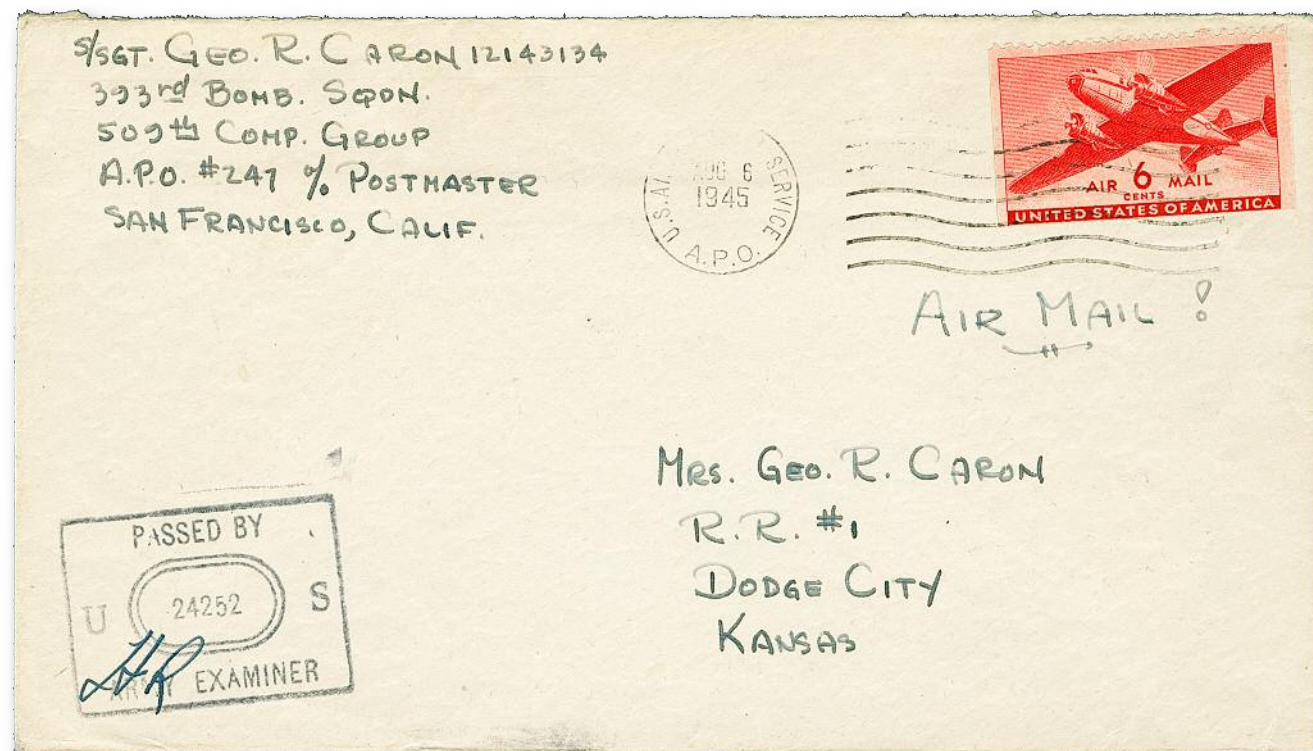 S/SGT. GEO. R. CARON 12143134
393rd BOMB. SQDN.
509th COMP. GROUP
A.P.O. #247 % POSTMASTER
SAN FRANCISCO, CALIF.
U.S. SERVICE
AUG 6
1945
A.P.O.
AIR 6 MAIL
CENTS
UNITED STATES OF AMERICA
AIR MAIL!
MRS. GEO. R. CARON
R.R. #1
DODGE CITY
KANSAS
PASSED BY
U 24252 S
ARMY EXAMINER